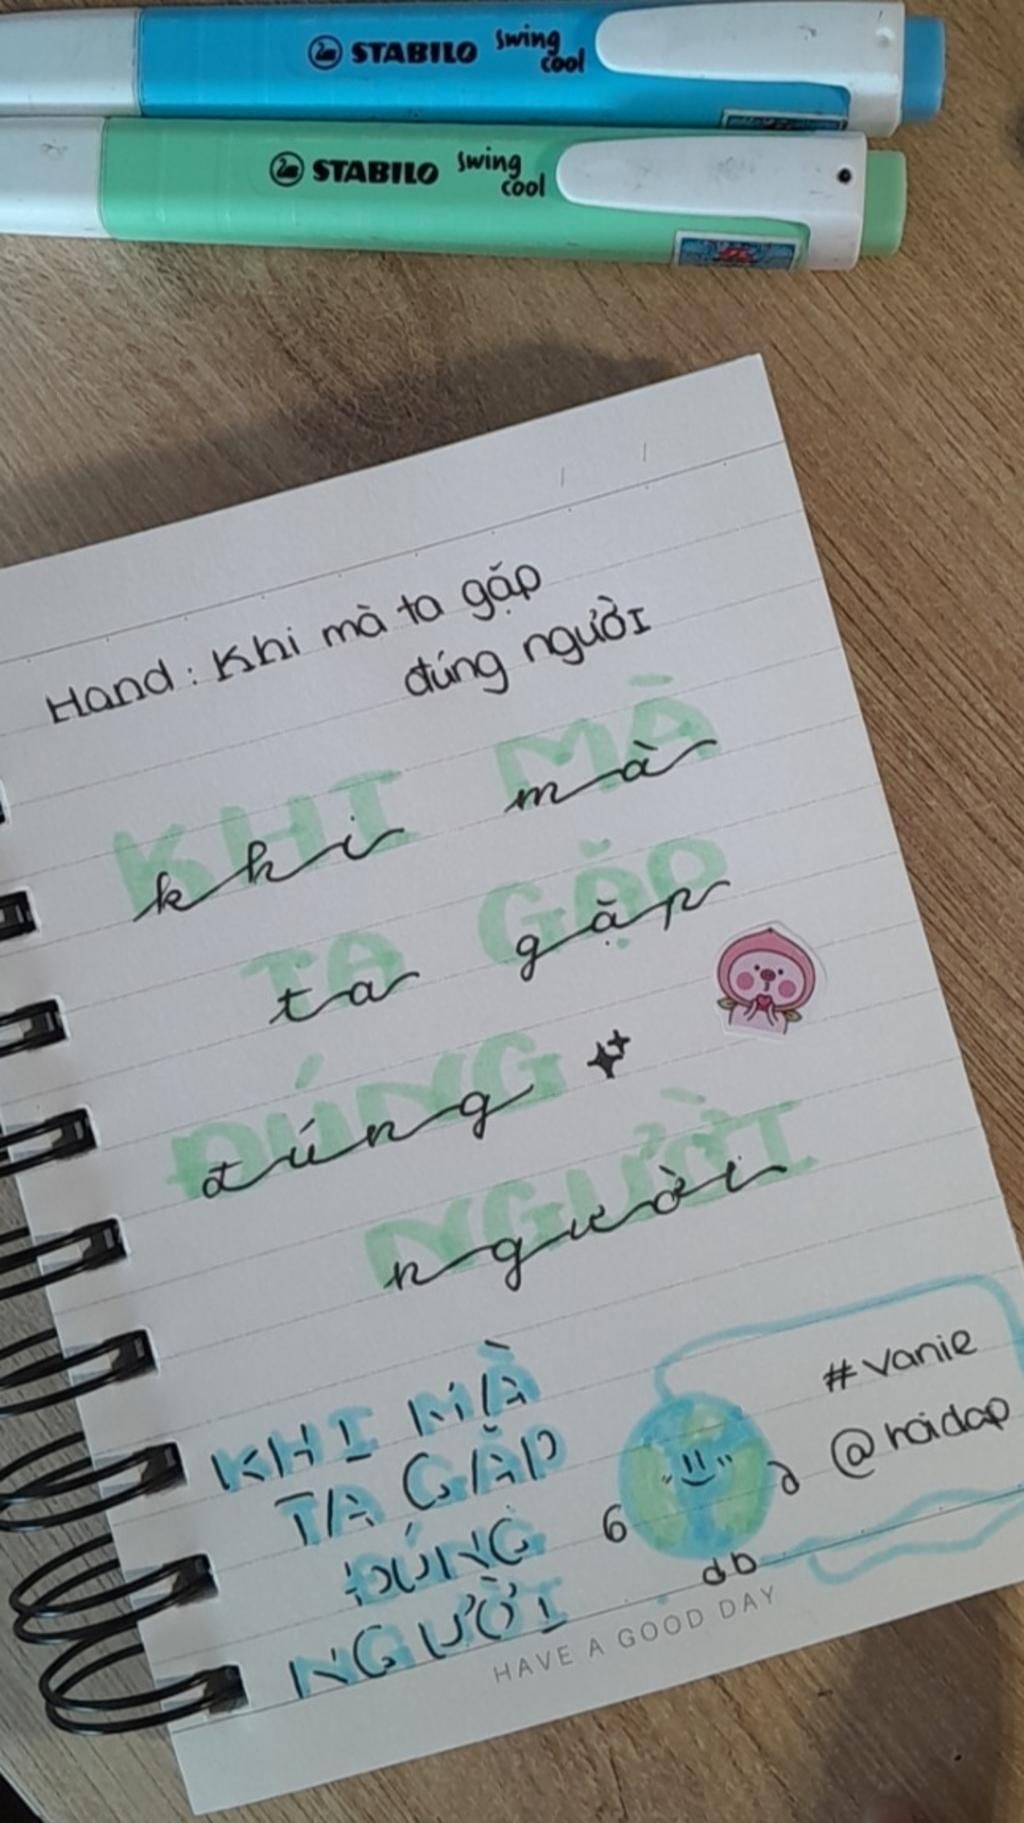 STABILO swing cool
STABILO swing cool
Hand: Khi mà ta gặp
đúng người
KHI MÀ
khi mà
TA GẶP
ta gặp
ĐÚNG
đúng
NGƯỜI
người
KHI MÀ
TA GẶP
ĐÚNG
NGƯỜI
#vanie
@hoidap
HAVE A GOOD DAY